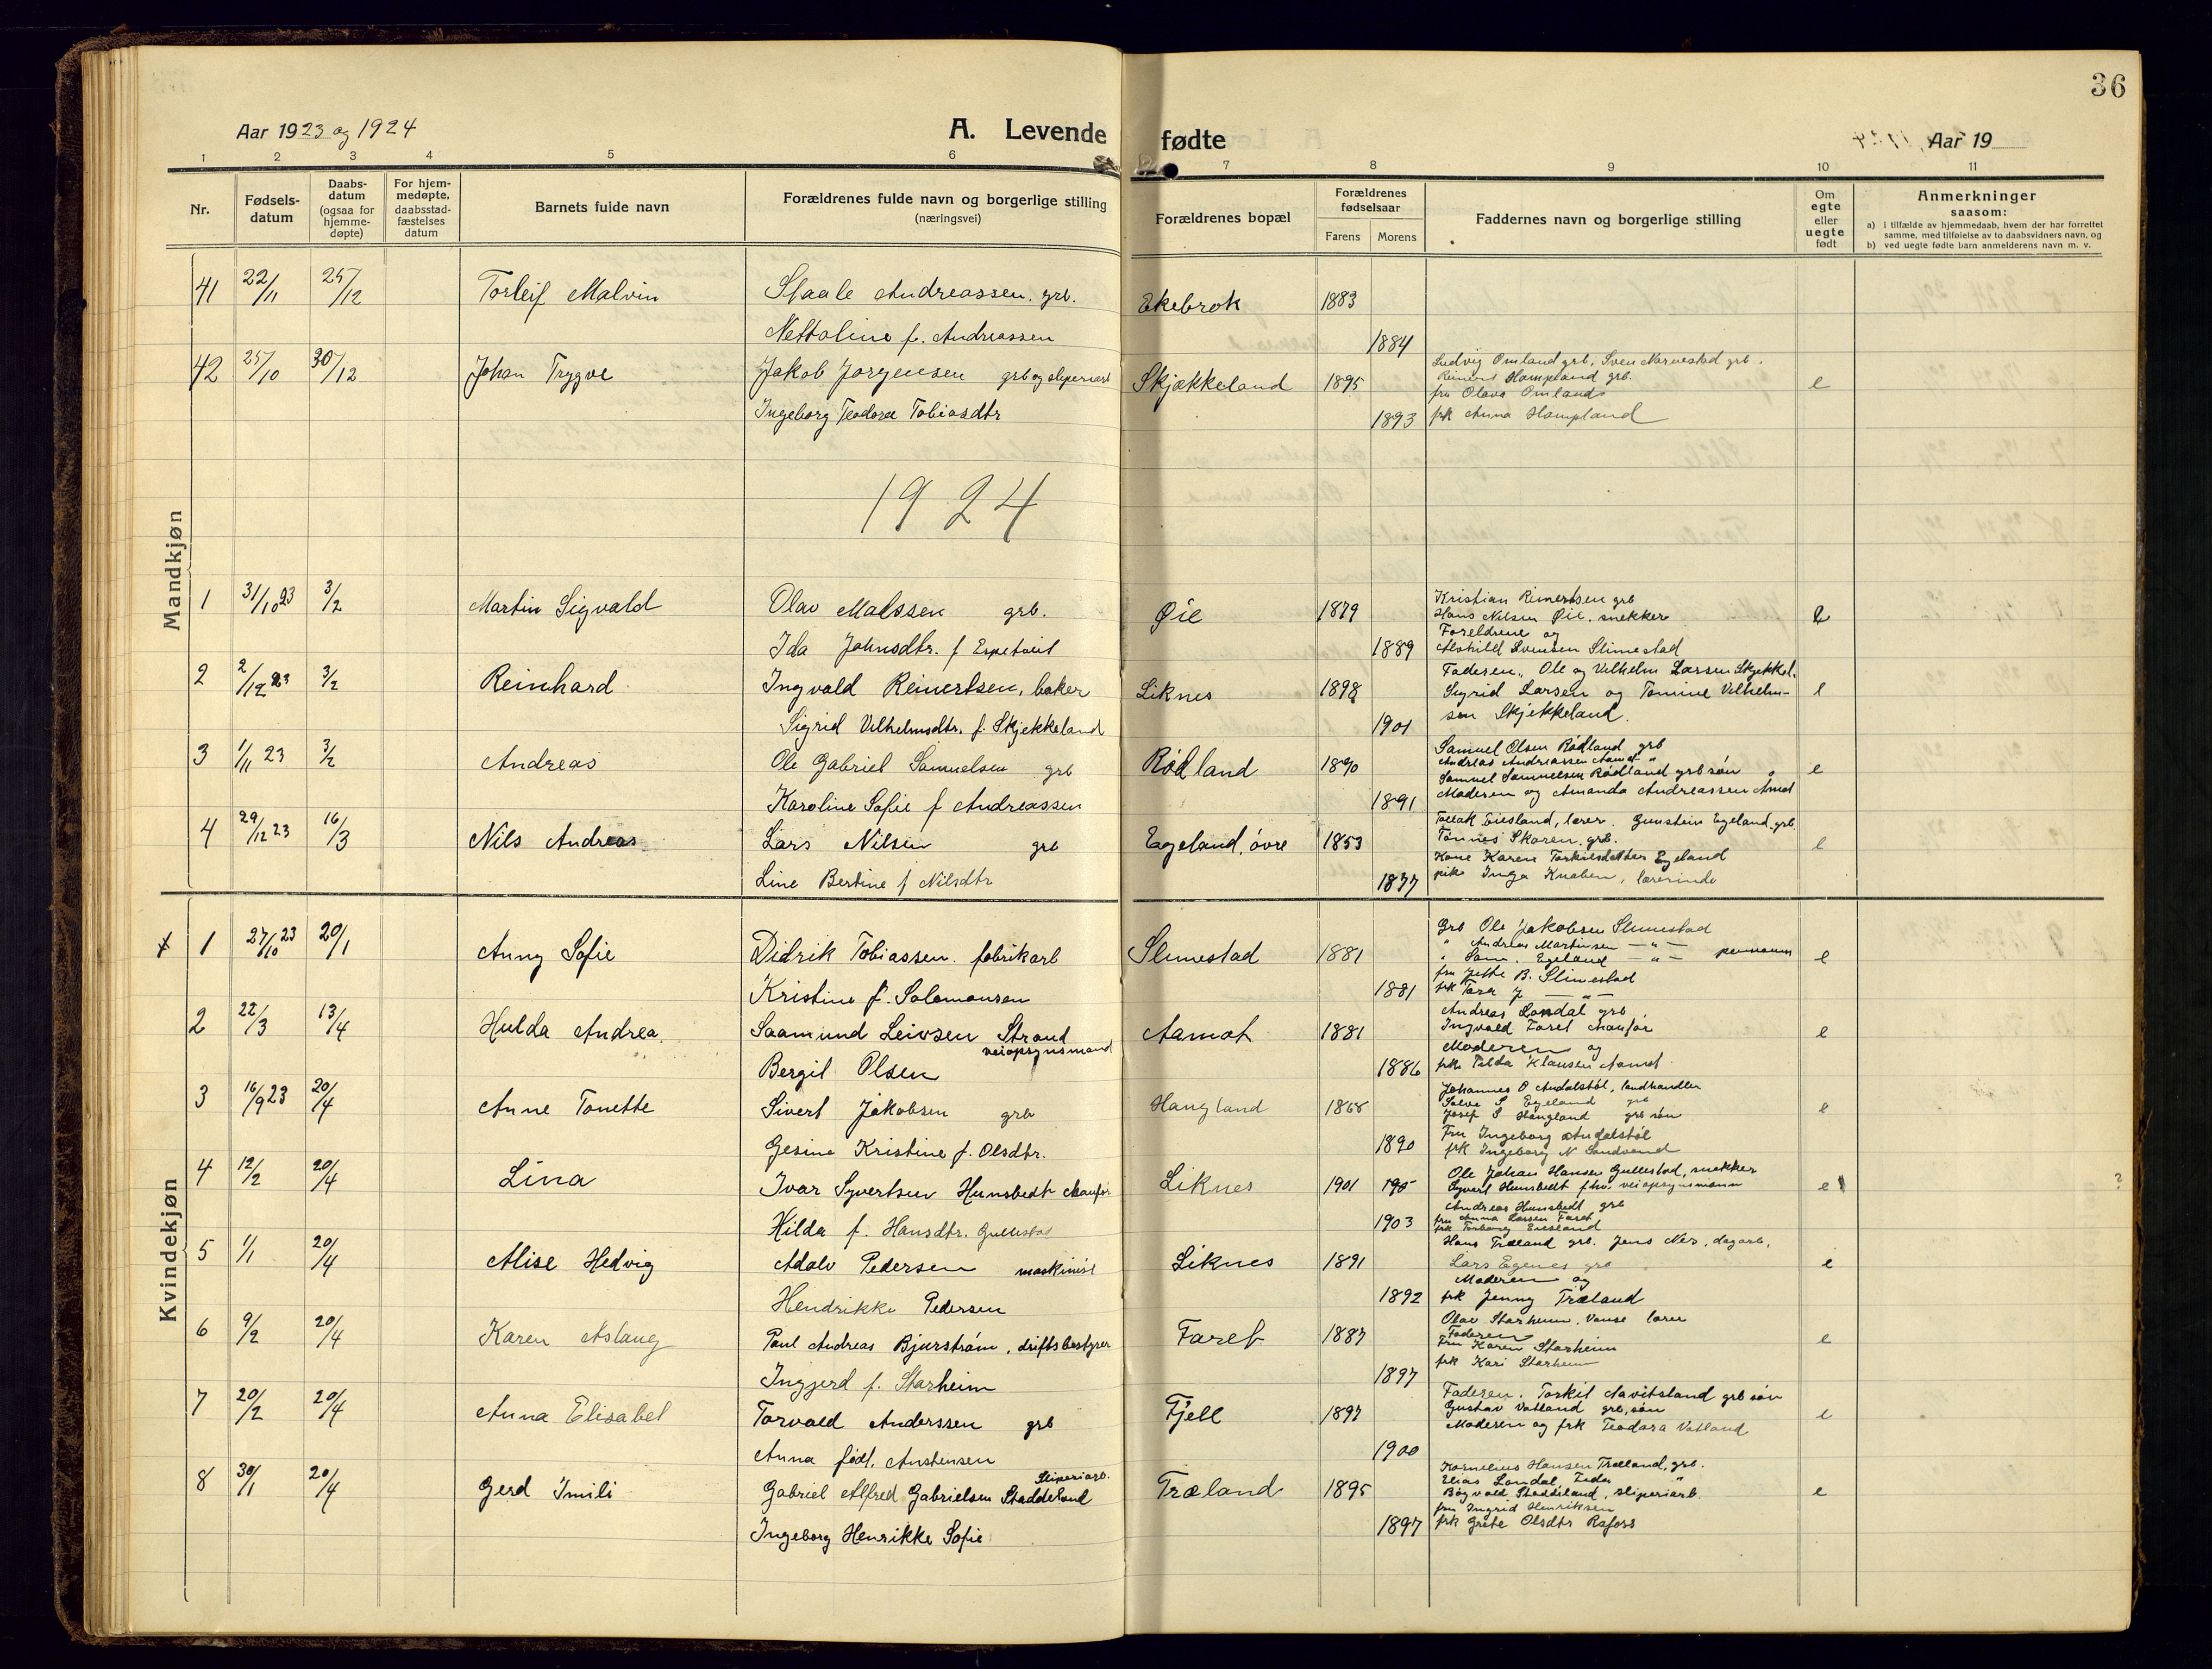 36
Aar 1923 og 1924
A. Levende fødte
Aar 19
1 2 3 4 5 6 7 8 9 10 11
Nr.
Fødsels-
datum
Daabs-
datum
(ogsaa for
hjemme-
døpte)
For hjem-
medøpte,
daabsstad-
fæstelses
datum
Barnets fulde navn
Forældrenes fulde navn og borgerlige stilling
(næringsvei)
Forældrenes bopæl
Forældrenes
fødselsaar
Farens Morens
Faddernes navn og borgerlige stilling
Om
egte
eller
uegte
født
Anmerkninger
saasom:
a) i tilfælde av hjemmedaab, hvem der har forrettet
samme, med tilføielse av to daabsvidners navn, og
b) ved uegte fødte barn anmelderens navn m. v.
Mandkjøn
41 22/11 25/12 Torleif Malvin Staale Andreassen, grb. Ekebrok 1883
Nettoline f. Andreassen 1884
42 25/10 30/12 Johan Trygve Jakob Jørgensen grb og Skjækkeland 1895 e
Ingeborg Teodora Tobiasdtr 1893
Ludvig Omland grb, Sven Narvestad grb.
Hampland grb.
fru Olava Omland
frk Anna Hampland
1924
1 31/10 23 3/2 Martin Sigvald Olav grb. Øie 1879 e
Ida Johnsdtr. f 1889
Kristian Reinertsen grb
Hans Nilsen Øie, snekker
Foreldrene og
Svensen Slimestad
2 2/12 23 3/2 Reinhard Ingvald Reinertsen, baker Liknes 1898 e
Sigrid Vilhelmsdtr. f. Skjekkeland 1901
Faderen, Ole og Vilhelm Larsen Skjekkel.
Sigrid Larsen og Tomine Vilhelm-
sen Skjekkeland.
3 1/11 23 3/2 Andreas Ole Gabriel Samuelsen grb Rødland 1890 e
Karoline Sofie f Andreassen 1891
Samuel Olsen Rødland grb
Andreas Andreassen Aamot "
Samuel Samuelsen Rødland grb søn
Moderen og Amanda Andreassen Åmot
4 29/12 23 16/3 Nils Andreas Lars Nilsen grb Egeland, øvre 1853 e
Line Bertine f Nilsdtr 1877
Tollak Eiesland, lærer. Gunstein Egeland, grb.
Tønnes Skaren, grb.
Kone Karen Egeland
pike Inga Knaben, lærerinde
Kvindekjøn
1 27/10 23 20/1 Anny Sofie Didrik Tobiassen, fabrikarb Slimestad 1881 e
Kristine f. Salomonsen 1881
Grb Ole Jakobsen Slimestad
" Andreas Martinsen — " —
" Egeland — " —
fru Jette B. Slimestad
frk — " —
2 22/3 13/4 Hulda Andrea. Saamund Leivsen Strand Aamot 1881 e
veiopsynsmand
Bergit Olsen 1886
Andreas Londal grb
Ingvald Faret chaufør
Moderen og
frk Tilda Klausen Aamot
3 16/9 23 20/4 Anne Tonette Sivert Jakobsen grb Haugland e
Gesine Kristine f. Olsdtr. 1890
Johannes O Andalstöl, landhandler
Salve S Egeland grb
Josef S Haugland grb søn
Fru Ingeborg Andalstöl
frk Ingeborg N Sandvand
4 12/2 20/4 Lina Ivar Syvertsen Hunsbedt chauför Liknes 1901 e ?
Hilda f. Hansdtr. Gullestad 1903
Ole Johan Hansen Gullestad, snekker
Syvert Hunsbedt fhv. veiopsynsmann
Andreas Hunsbedt grb
fru Anna Larsen Faret
frk Torborg Eiesland
5 1/1 20/4 Alise Hedvig Adolv Pedersen maskinist Liknes 1891 e
Hendrikke Pedersen 1892
Hans Træland grb. Jens Nes, dagarb.
Lars Egenes grb
Moderen og
frk Jenny Træland
6 9/2 20/4 Karen Aslaug Paul Andreas Bjurstrøm, driftsbestyrer Faret 1887 e
Ingjerd f. Starheim 1897
Olav Starheim, Vanse lærer
Faderen
Fru Karen Starheim
frk Kari Starheim
7 20/2 20/4 Anna Elisabet Torvald Anderssen grb Fjell 1897 e
Anna född. Austensen 1900
Faderen. Torkil Aavitsland grb søn
Gustav Vatland grb. søn
Moderen og frk Teodora Vatland
8 30/1 20/4 Gerd Imili Gabriel Alfred Gabrielsen Staddeland Træland 1895 e
Sliperiarb.
Ingeborg Henrikke Sofie 1897
Kornelius Hansen Træland, grb.
Elias Londal, Feda "
Bøgvald Staddeland, sliperiarb.
fru Ingrid Henriksen
frk Grete Olsdtr Rafoss